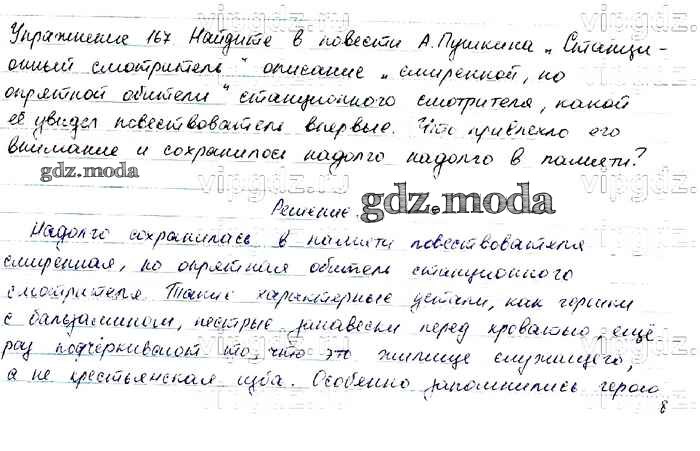 Упражнение 167. Найдите в повести А. Пушкина „Станци-
онный смотритель" описание „смиренной, но
опрятной обители" станционного смотрителя, какой
её увидел повествователь впервые. Что привлекло его
внимание и сохранилось надолго надолго в памяти?
gdz.moda
Решение.
gdz.moda
Надолго сохранилась в памяти повествователя
смиренная, но опрятная обитель станционного
смотрителя. Такие характерные детали, как горшки
с бальзамином, пестрые занавески перед кроватью, ещё
раз подчёркивают то, что это жилище служащего,
а не крестьянская изба. Особенно запомнились герою
vipgdz.ru
vipgdz.ru
vipgdz.ru
vipgdz.ru